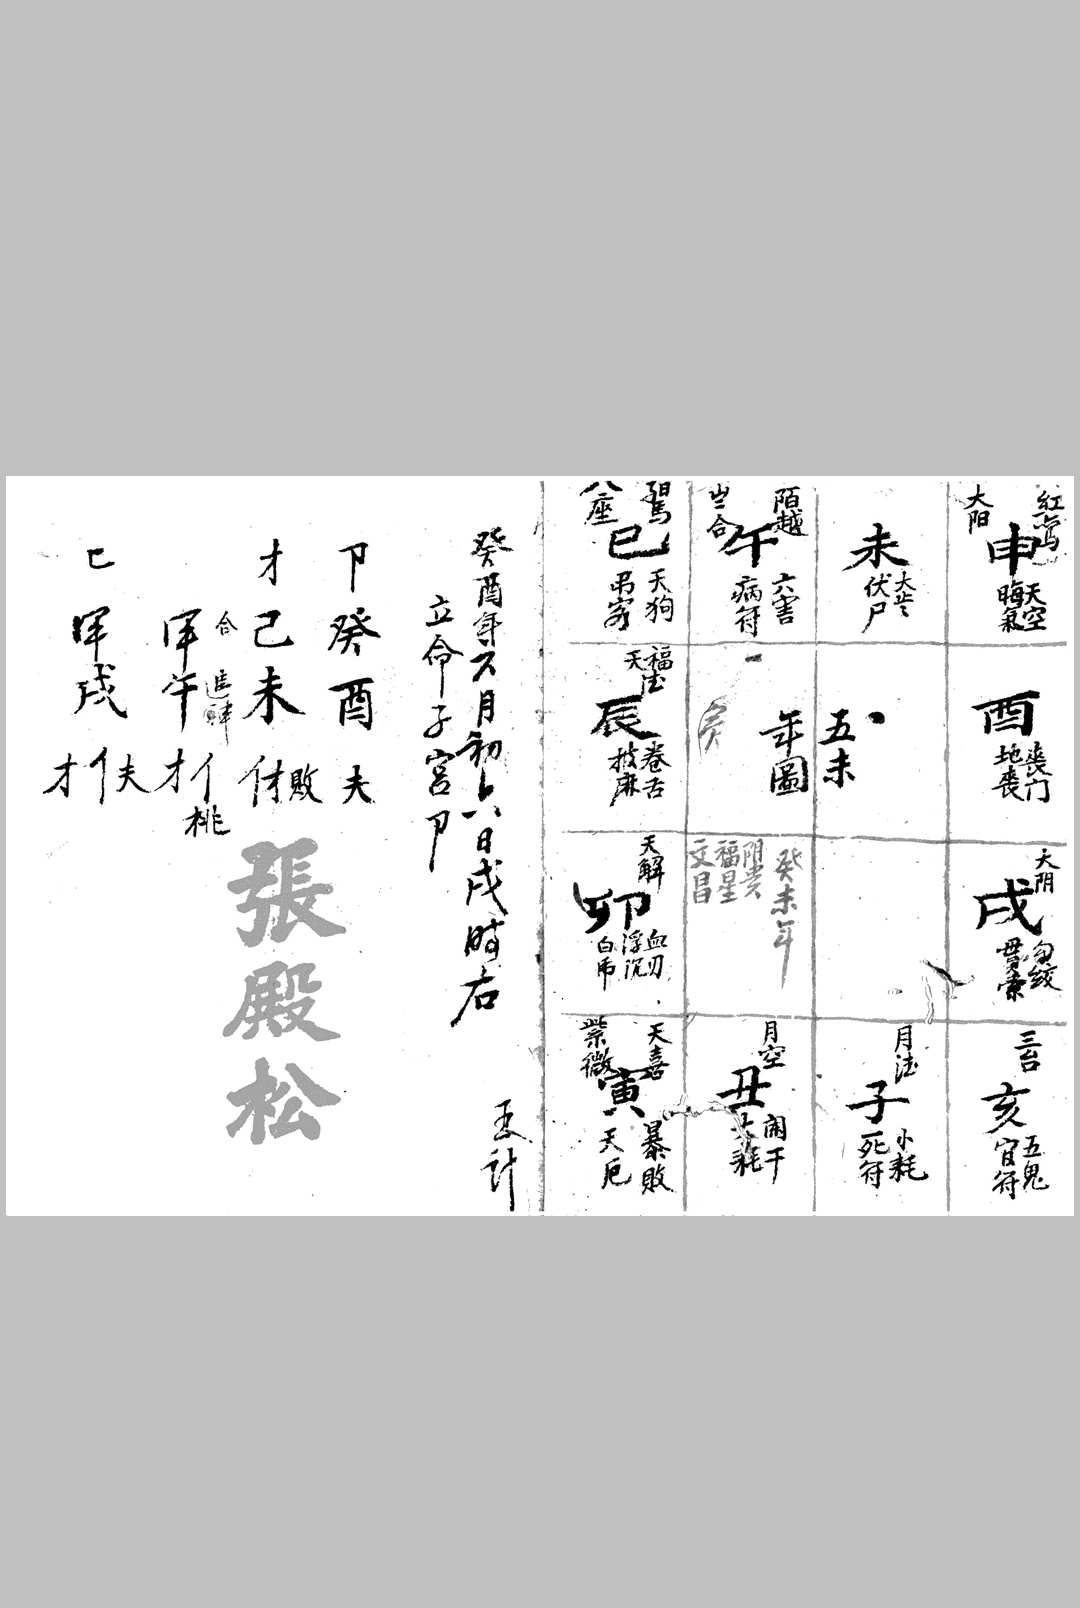 紅鸞
大阳
申
天空
晦氣
未
大歲
伏尸
陌越
合
午
六害
病符
八座
巳
天狗
吊客
酉
喪门
地喪
五未
年圖
福德
天
辰
卷舌
披麻
大阴
戌
勾絞
貫索
癸未年
阴貴
福星
文昌
天解
卯
血刃
浮沉
白虎
三台
亥
五鬼
官符
月德
子
小耗
死符
月空
丑
闌干
大耗
天喜
紫微
寅
暴敗
天厄
癸酉年六月初六日戌時右
立命子宮卩
卩
癸酉
夫
才
己未
敗
合
進神
午
才
桃
戌
夫
才
張殿松